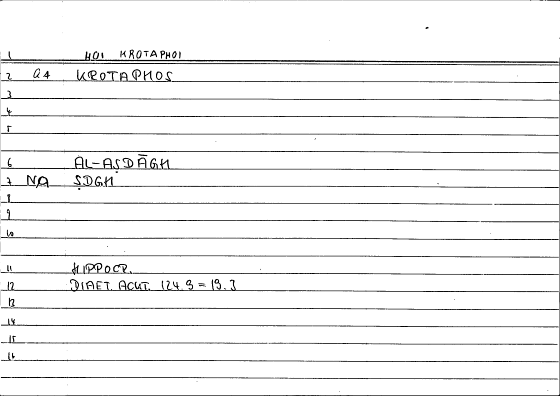 1 HOI KROTAPHOI
2 a4 KROTAPHOS
3
4
5
6 AL-AṢDĀGH
7 NA ṢDGH
8
9
10
11 HIPPOCR.
12 DIAET. ACUT. 124.9 = 19.3
13
14
15
16